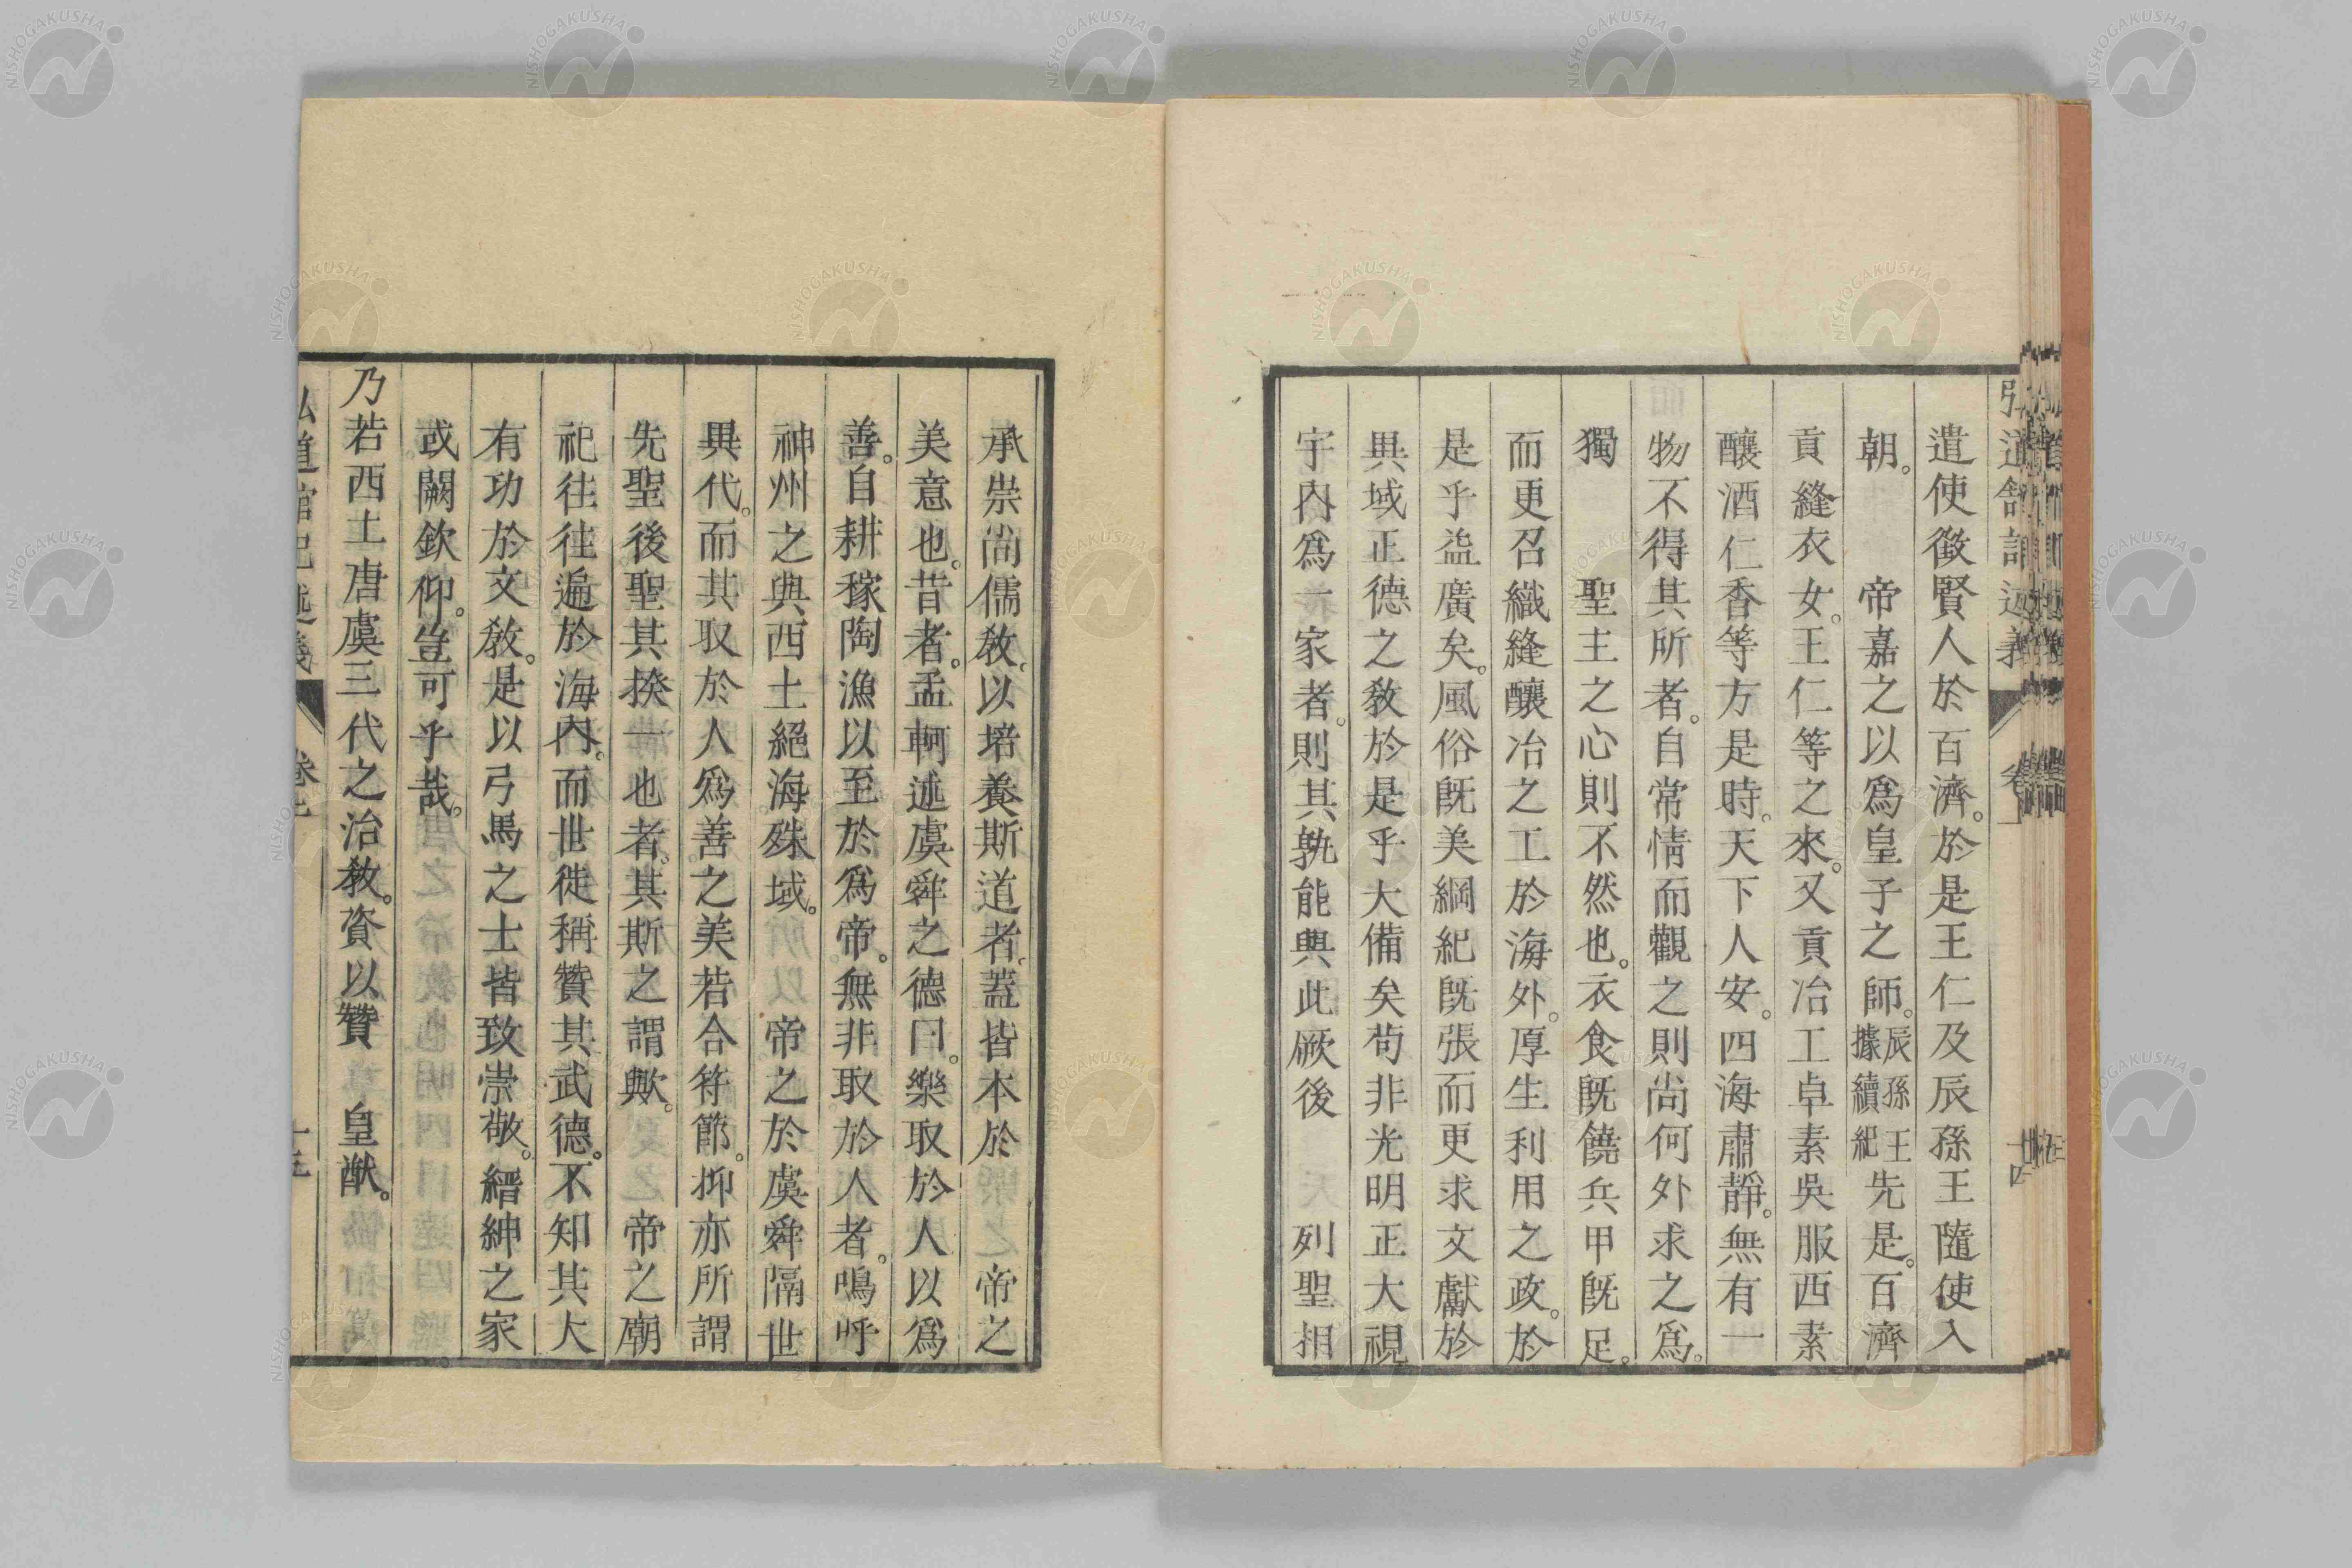 弘道館記述義 卷上
遣使徵賢人於百濟。於是王仁及辰孫王隨使入
朝。 帝嘉之以爲皇子之師。據續紀辰孫王先是。百濟
貢縫衣女。王仁等之來。又貢冶工卓素吳服西素
釀酒仁香等方是時。天下人安。四海肅靜。無有一
物不得其所者。自常情而觀之則尚何外求之爲。
獨 聖主之心則不然也。衣食既饒兵甲既足。
而更召織縫釀冶之工於海外。厚生利用之政。於
是乎益廣矣。風俗既美綱紀既張而更求文獻於
異域正德之敎於是乎大備矣苟非光明正大視
宇內爲一家者。則其孰能與此厥後 列聖相
承崇尚儒敎。以培養斯道者。蓋皆本於 帝之
美意也。昔者。孟軻述虞舜之德曰。樂取於人以爲
善。自耕稼陶漁以至於爲帝。無非取於人者。嗚呼
神州之與西土絕海殊域。 帝之於虞舜隔世
異代。而其取於人爲善之美若合符節。抑亦所謂
先聖後聖其揆一也者。其斯之謂歟。 帝之廟
祀往往遍於海內。而世徒稱贊其武德。不知其大
有功於文敎。是以弓馬之士皆致崇敬。縉紳之家
或闕欽仰。豈可乎哉。
乃若西土唐虞三代之治敎。資以贊 皇猷。
弘道館記述義 卷上 十五
NISHOGAKUSHA